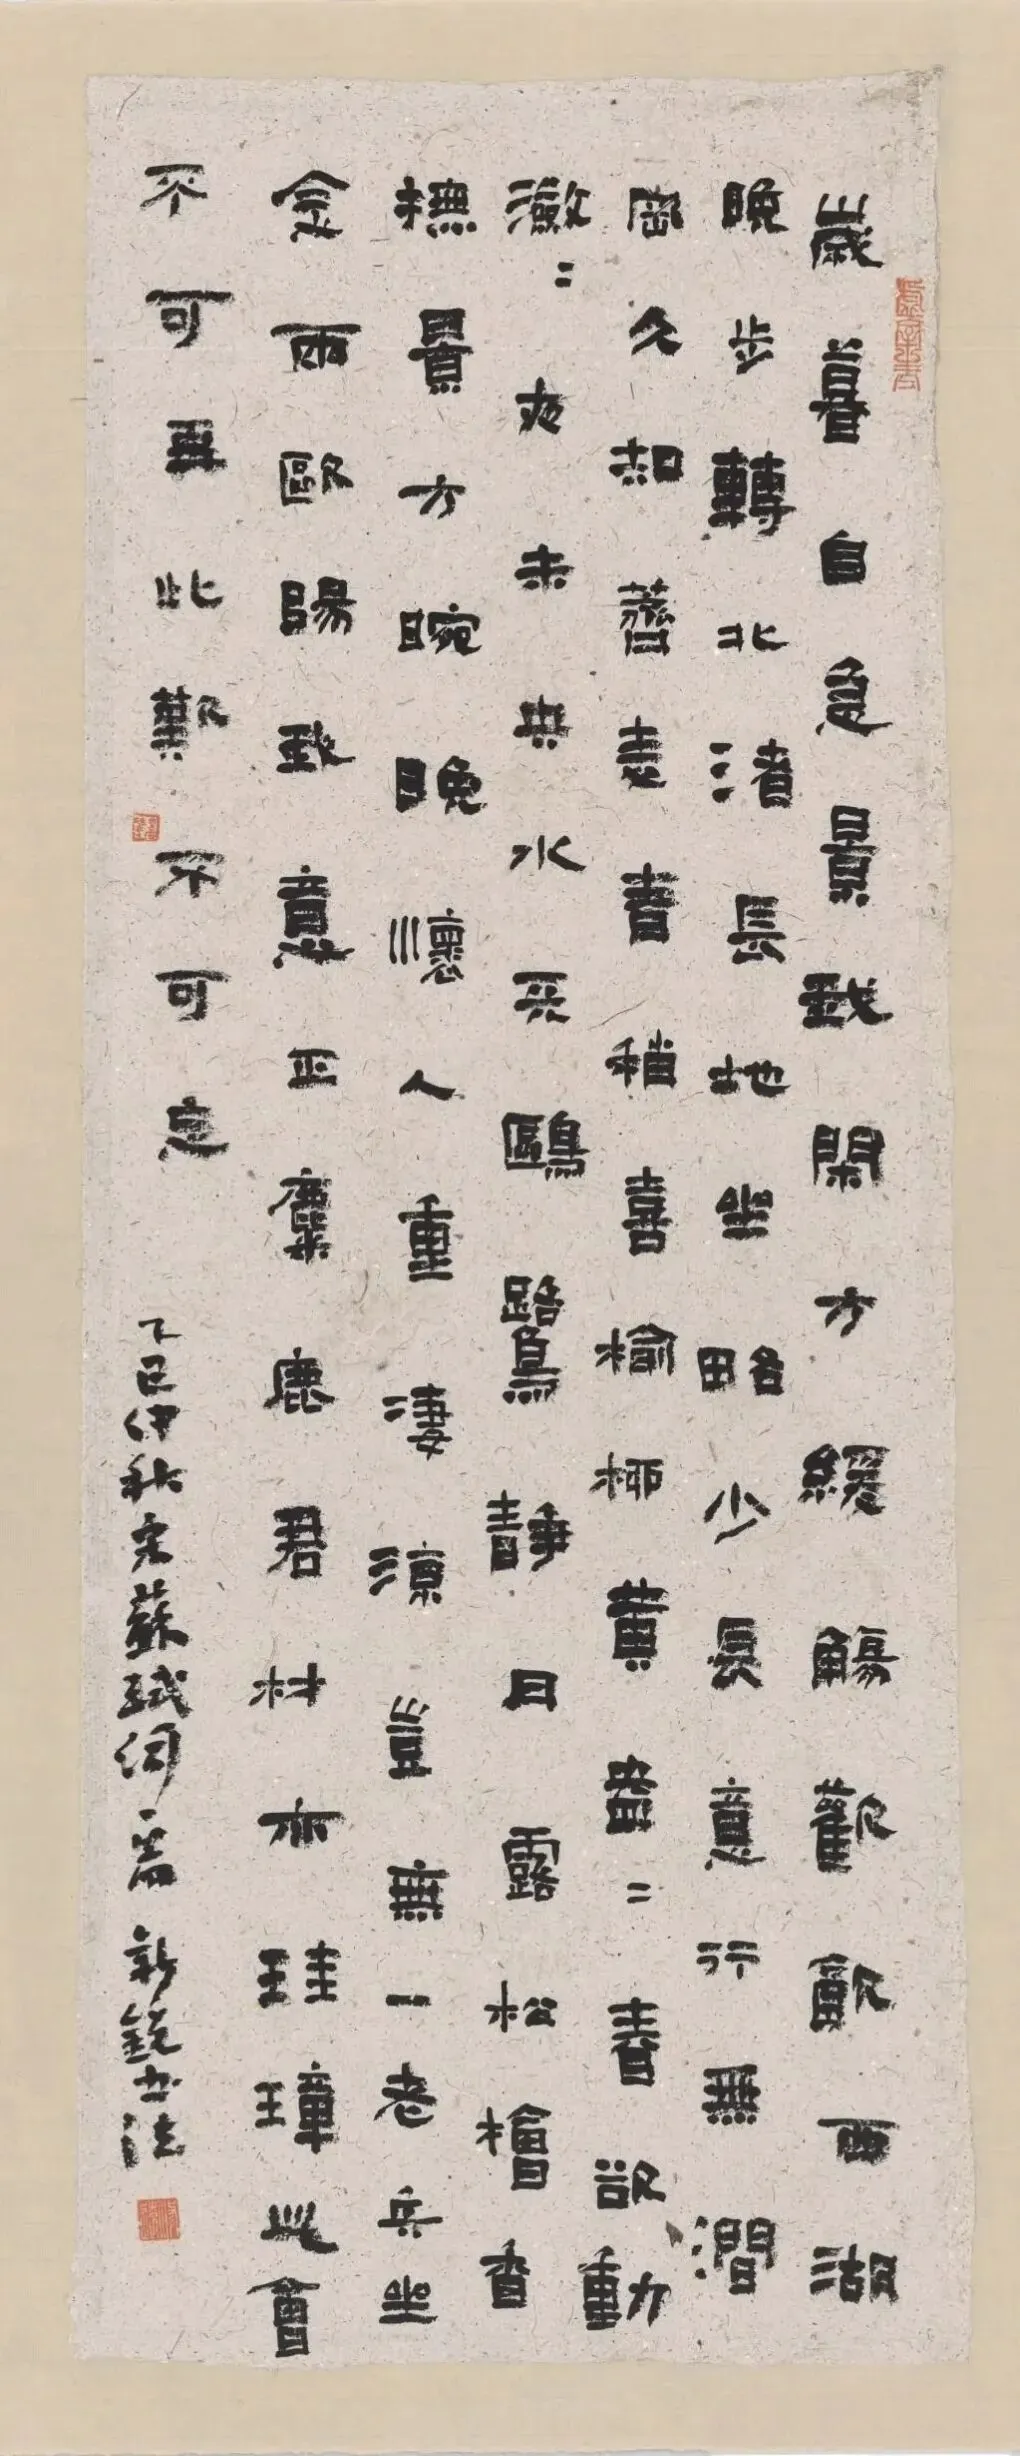 歲暮自急景我閑方緩觴歡飲西湖
晚步轉北渚長地坐略少長意行無澗
岡久知薺麦青稍喜榆柳黄盎二春欲動
瀲二夜未央水天鷗鷺靜月露松檜香
橅景方晼晚懷人重淒涼豈無一老兵坐
念兩歐陽我意正麋鹿君材亦珪璋此會
不可再此歡不可忘
乙巳仲秋宋蘇軾詞一篇 新鋭书法